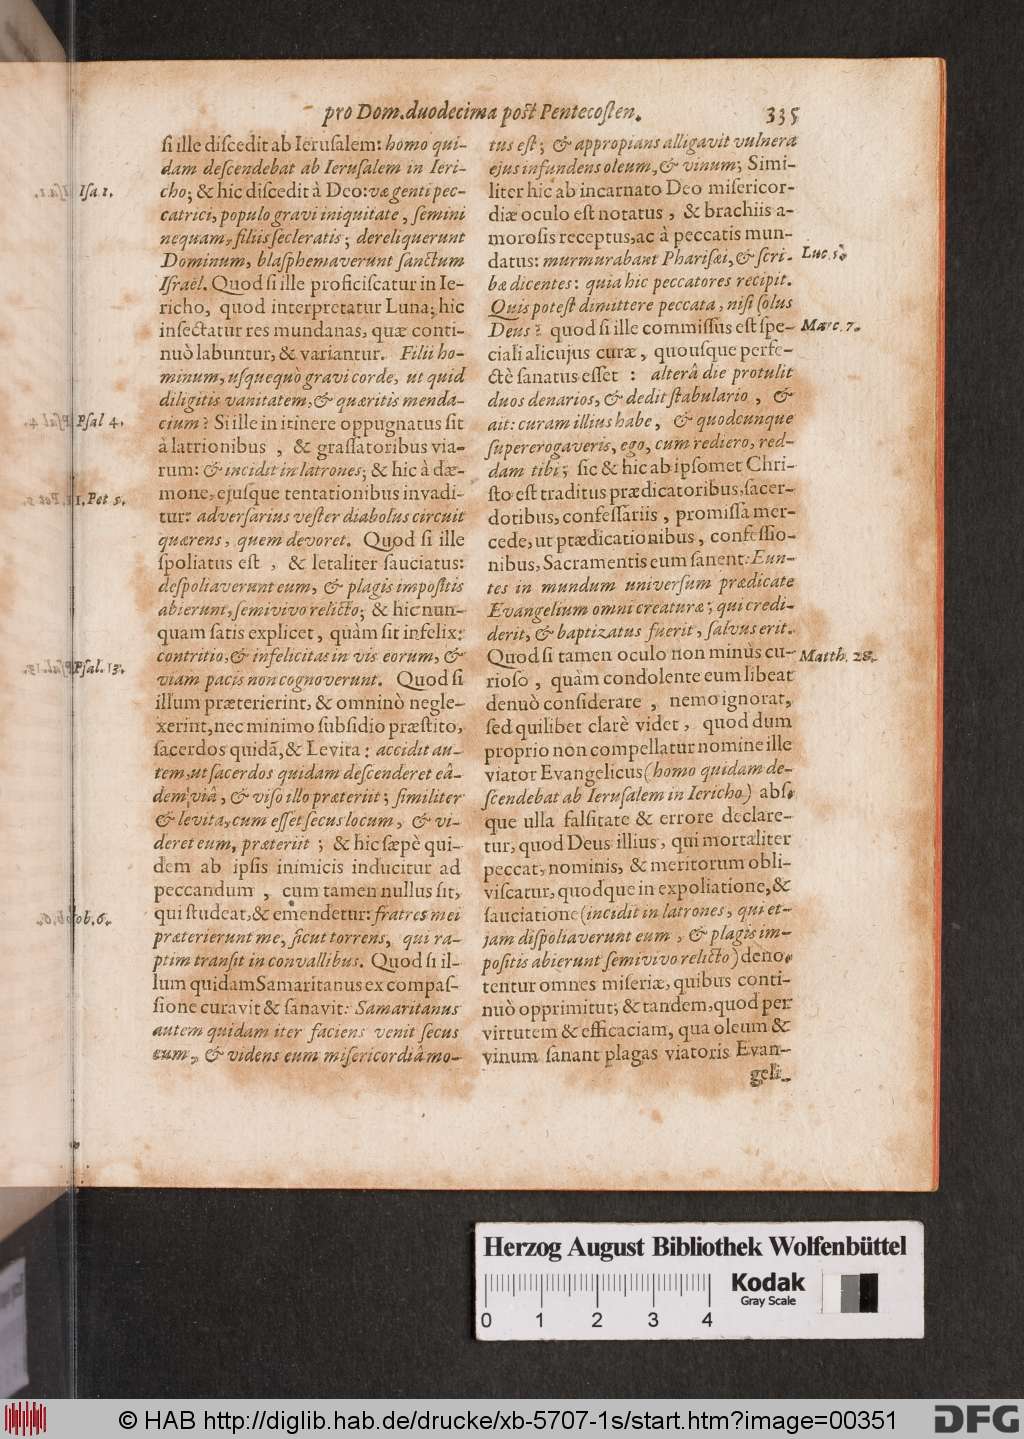 pro Dom. duodecima post Pentecosten.
335
si ille discedit ab Ierusalem: homo qui-
dam descendebat ab Ierusalem in Ieri-
cho; & hic discedit à Deo: væ genti pec-
catrici, populo gravi iniquitate, semini
nequam, filiis sceleratis; dereliquerunt
Dominum, blasphemaverunt sanctum
Israël. Quod si ille proficiscatur in Ie-
richo, quod interpretatur Luna; hic
insectatur res mundanas, quæ conti-
nuò labuntur, & variantur. Filii ho-
minum, usquequò gravi corde, ut quid
diligitis vanitatem, & quæritis menda-
cium? Si ille in itinere oppugnatus sit
à latrionibus, & grassatoribus via-
rum: & incidit in latrones; & hic à dæ-
mone, ejusque tentationibus invadi-
tur: adversarius vester diabolus circuit
quærens, quem devoret. Quod si ille
spoliatus est, & letaliter sauciatus:
despoliaverunt eum, & plagis impositis
abierunt, semivivo relicto; & hic nun-
quam satis explicet, quàm sit infelix:
contritio, & infelicitas in vis eorum, &
viam pacis non cognoverunt. Quod si
illum præterierint, & omninò negle-
xerint, nec minimo subsidio præstito,
sacerdos quidã, & Levita: accidit au-
tem, ut sacerdos quidam descenderet eâ-
dem viâ, & viso illo præteriit; similiter
& levita, cum esset secus locum, & vi-
deret eum, præteriit; & hic sæpè qui-
dem ab ipsis inimicis inducitur ad
peccandum, cum tamen nullus sit,
qui studeat, & emendetur: fratres mei
præterierunt me, sicut torrens, qui ra-
ptim transit in convallibus. Quod si il-
lum quidam Samaritanus ex compas-
sione curavit & sanavit: Samaritanus
autem quidam iter faciens venit secus
eum, & videns eum misericordiâ mo-
Isa 1.
Psal 4.
1. Pet 5.
Psal. 13.
Iob. 6.
tus est; & appropians alligavit vulnera
ejus infundens oleum, & vinum; Simi-
liter hic ab incarnato Deo misericor-
diæ oculo est notatus, & brachiis a-
morosis receptus, ac à peccatis mun-
datus: murmurabant Pharisæi, & scri-
bæ dicentes: quia hic peccatores recipit.
Quis potest dimittere peccata, nisi solus
Deus? quod si ille commissus est spe-
ciali alicujus curæ, quousque perfe-
ctè sanatus esset: alterâ die protulit
duos denarios, & dedit stabulario, &
ait: curam illius habe, & quodcunque
supererogaveris, ego, cum rediero, red-
dam tibi; sic & hic ab ipsomet Chri-
sto est traditus prædicatoribus, sacer-
dotibus, confessariis, promissâ mer-
cede, ut prædicationibus, confessio-
nibus, Sacramentis eum sanent: Eun-
tes in mundum universum prædicate
Evangelium omni creaturæ; qui credi-
derit, & baptizatus fuerit, salvus erit.
Quod si tamen oculo non minùs cu-
rioso, quàm condolente eum libeat
denuò considerare, nemo ignorat,
sed quilibet clarè videt, quod dum
proprio non compellatur nomine ille
viator Evangelicus (homo quidam de-
scendebat ab Ierusalem in Iericho) abs-
que ulla falsitate & errore declare-
tur, quod Deus illius, qui mortaliter
peccat, nominis, & meritorum obli-
viscatur, quodque in expoliatione, &
sauciatione (incidit in latrones, qui et-
jam dispoliaverunt eum, & plagis im-
positis abierunt semivivo relicto) deno-
tentur omnes miseriæ, quibus conti-
nuò opprimitur; & tandem, quod per
virtutem & efficaciam, qua oleum &
vinum sanant plagas viatoris Evan-
geli-
Luc. 5.
Marc. 7.
Matth. 28.
Herzog August Bibliothek Wolfenbüttel
Kodak
Gray Scale
0 1 2 3 4
© HAB http://diglib.hab.de/drucke/xb-5707-1s/start.htm?image=00351
DFG